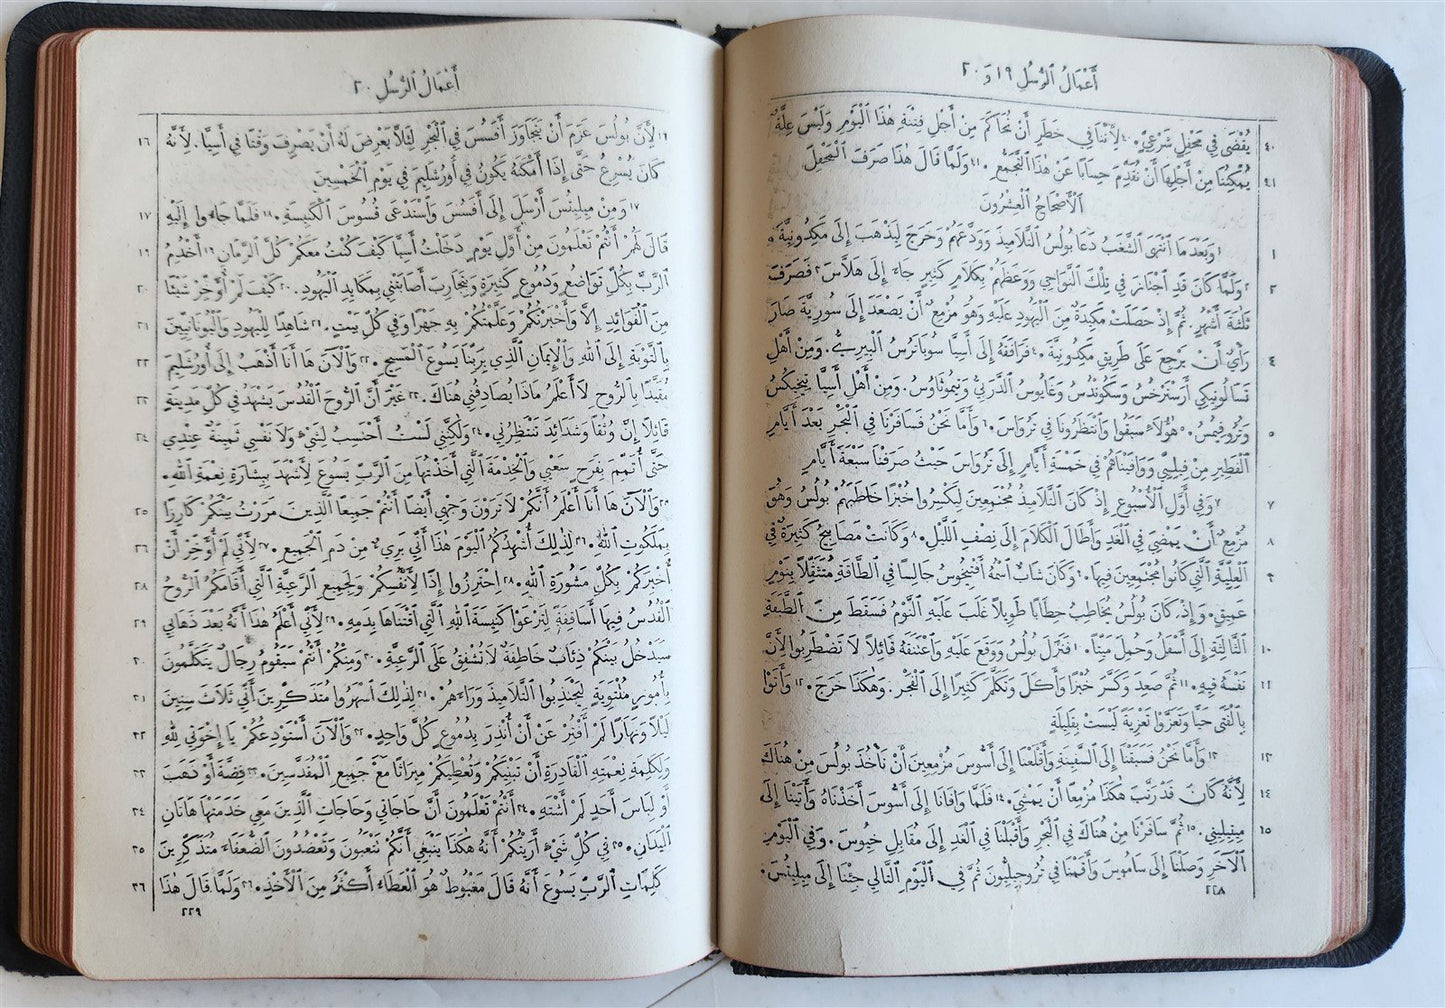 أَعْمَالُ ٱلرُّسُلِ ١٩ وَ ٢٠
يُقْضَى فِي مَحْفِلٍ شَرْعِيٍّ. ٤٠ لِأَنَّنَا فِي خَطَرٍ أَنْ نُحَاكَمَ مِنْ أَجْلِ فِتْنَةِ هٰذَا ٱلْيَوْمِ وَلَيْسَ عِلَّةٌ ٤٠
يُمْكِنُنَا مِنْ أَجْلِهَا أَنْ نُقَدِّمَ حِسَابًا عَنْ هٰذَا ٱلتَّجَمُّعِ. ٤١ وَلَمَّا قَالَ هٰذَا صَرَفَ ٱلْمَحْفِلَ ٤١
ٱلْأَصْحَاحُ ٱلْعِشْرُونَ
١ وَبَعْدَمَا ٱنْتَهَى ٱلشَّغَبُ دَعَا بُولُسُ ٱلتَّلَامِيذَ وَوَدَّعَهُمْ وَخَرَجَ لِيَذْهَبَ إِلَى مَكِدُونِيَّةَ. ١
٢ وَلَمَّا كَانَ قَدِ ٱجْتَازَ فِي تِلْكَ ٱلنَّوَاحِي وَوَعَظَهُمْ بِكَلَامٍ كَثِيرٍ جَاءَ إِلَى هَلَّاسَ ٣ فَصَرَفَ ٢
ثَلٰثَةَ أَشْهُرٍ. ثُمَّ إِذْ حَصَلَتْ مَكِيدَةٌ مِنَ ٱلْيَهُودِ عَلَيْهِ وَهُوَ مُزْمِعٌ أَنْ يَصْعَدَ إِلَى سُورِيَّةَ صَارَ
رَأْيٌ أَنْ يَرْجِعَ عَلَى طَرِيقِ مَكِدُونِيَّةَ. ٤ فَرَافَقَهُ إِلَى أَسِيَّا سُوبَاتَرُسُ ٱلْبِيرِيُّ. وَمِنْ أَهْلِ ٤
تَسَالُونِيكِي أَرِسْتَرْخُسُ وَسَكُونْدُسُ وَغَايُوسُ ٱلدَّرْبِيُّ وَتِيمُوثَاوُسُ. وَمِنْ أَهْلِ أَسِيَّا تِيخِيكُسُ
وَتُرُوفِيمُسُ. ٥ هٰؤُلَاءِ سَبَقُوا وَٱنْتَظَرُونَا فِي تَرُوَاسَ. ٦ وَأَمَّا نَحْنُ فَسَافَرْنَا فِي ٱلْبَحْرِ بَعْدَ أَيَّامِ ٥
ٱلْفَطِيرِ مِنْ فِيلِبِّي وَوَافَيْنَاهُمْ فِي خَمْسَةِ أَيَّامٍ إِلَى تَرُوَاسَ حَيْثُ صَرَفْنَا سَبْعَةَ أَيَّامٍ
٧ وَفِي أَوَّلِ ٱلْأُسْبُوعِ إِذْ كَانَ ٱلتَّلَامِيذُ مُجْتَمِعِينَ لِيَكْسِرُوا خُبْزًا خَاطَبَهُمْ بُولُسُ وَهُوَ ٧
مُزْمِعٌ أَنْ يَمْضِيَ فِي ٱلْغَدِ وَأَطَالَ ٱلْكَلَامَ إِلَى نِصْفِ ٱللَّيْلِ. ٨ وَكَانَتْ مَصَابِيحُ كَثِيرَةٌ فِي ٨
ٱلْعِلِّيَّةِ ٱلَّتِي كَانُوا مُجْتَمِعِينَ فِيهَا. ٩ وَكَانَ شَابٌّ ٱسْمُهُ أَفْتِيخُوسُ جَالِسًا فِي ٱلطَّاقَةِ مُتَثَقِّلًا بِنَوْمٍ ٩
عَمِيقٍ. وَإِذْ كَانَ بُولُسُ يُخَاطِبُ خِطَابًا طَوِيلًا غَلَبَ عَلَيْهِ ٱلنَّوْمُ فَسَقَطَ مِنَ ٱلطَّبَقَةِ
ٱلثَّالِثَةِ إِلَى أَسْفَلُ وَحُمِلَ مَيِّتًا. ١٠ فَنَزَلَ بُولُسُ وَوَقَعَ عَلَيْهِ وَٱعْتَنَقَهُ قَائِلًا لَا تَضْطَرِبُوا لِأَنَّ ١٠
نَفْسَهُ فِيهِ. ١١ ثُمَّ صَعِدَ وَكَسَّرَ خُبْزًا وَأَكَلَ وَتَكَلَّمَ كَثِيرًا إِلَى ٱلْفَجْرِ. وَهٰكَذَا خَرَجَ. ١٢ وَأَتَوْا ١١
بِٱلْفَتَى حَيًّا وَتَعَزَّوْا تَعْزِيَةً لَيْسَتْ بِقَلِيلَةٍ
١٣ وَأَمَّا نَحْنُ فَسَبَقْنَا إِلَى ٱلسَّفِينَةِ وَأَقْلَعْنَا إِلَى أَسُّوسَ مُزْمِعِينَ أَنْ نَأْخُذَ بُولُسَ مِنْ هُنَاكَ ١٣
لِأَنَّهُ كَانَ قَدْ رَتَّبَ هٰكَذَا مُزْمِعًا أَنْ يَمْشِيَ. ١٤ فَلَمَّا وَافَانَا إِلَى أَسُّوسَ أَخَذْنَاهُ وَأَتَيْنَا إِلَى ١٤
مِيتِيلِينِي. ١٥ ثُمَّ سَافَرْنَا مِنْ هُنَاكَ فِي ٱلْبَحْرِ وَأَقْبَلْنَا فِي ٱلْغَدِ إِلَى مُقَابِلِ خِيُوسَ. وَفِي ٱلْيَوْمِ ١٥
ٱلْآخَرِ وَصَلْنَا إِلَى سَامُوسَ وَأَقَمْنَا فِي تُرُوجِيلِيُّونَ ثُمَّ فِي ٱلْيَوْمِ ٱلتَّالِي جِئْنَا إِلَى مِيلِيتُسَ.
٢٢٨
أَعْمَالُ ٱلرُّسُلِ ٢٠
١٦ لِأَنَّ بُولُسَ عَزَمَ أَنْ يَتَجَاوَزَ أَفَسُسَ فِي ٱلْبَحْرِ لِئَلَّا يَعْرِضَ لَهُ أَنْ يَصْرِفَ وَقْتًا فِي أَسِيَّا. لِأَنَّهُ ١٦
كَانَ يُسْرِعُ حَتَّى إِذَا أَمْكَنَهُ يَكُونُ فِي أُورُشَلِيمَ فِي يَوْمِ ٱلْخَمْسِينَ
١٧ وَمِنْ مِيلِيتُسَ أَرْسَلَ إِلَى أَفَسُسَ وَٱسْتَدْعَى قُسُوسَ ٱلْكَنِيسَةِ. ١٨ فَلَمَّا جَاءُوا إِلَيْهِ ١٧
قَالَ لَهُمْ أَنْتُمْ تَعْلَمُونَ مِنْ أَوَّلِ يَوْمٍ دَخَلْتُ أَسِيَّا كَيْفَ كُنْتُ مَعَكُمْ كُلَّ ٱلزَّمَانِ ١٩ أَخْدُمُ ١٩
ٱلرَّبَّ بِكُلِّ تَوَاضُعٍ وَدُمُوعٍ كَثِيرَةٍ وَبِتَجَارِبَ أَصَابَتْنِي بِمَكَايِدِ ٱلْيَهُودِ. ٢٠ كَيْفَ لَمْ أُؤَخِّرْ شَيْئًا ٢٠
مِنَ ٱلْفَوَائِدِ إِلَّا وَأَخْبَرْتُكُمْ وَعَلَّمْتُكُمْ بِهِ جَهْرًا وَفِي كُلِّ بَيْتٍ. ٢١ شَاهِدًا لِلْيَهُودِ وَٱلْيُونَانِيِّينَ ٢١
بِٱلتَّوْبَةِ إِلَى ٱللهِ وَٱلْإِيمَانِ ٱلَّذِي بِرَبِّنَا يَسُوعَ ٱلْمَسِيحِ. ٢٢ وَٱلْآنَ هَا أَنَا أَذْهَبُ إِلَى أُورُشَلِيمَ ٢٢
مُقَيَّدًا بِٱلرُّوحِ لَا أَعْلَمُ مَاذَا يُصَادِفُنِي هُنَاكَ. ٢٣ غَيْرَ أَنَّ ٱلرُّوحَ ٱلْقُدُسَ يَشْهَدُ فِي كُلِّ مَدِينَةٍ ٢٣
قَائِلًا إِنَّ وُثُقًا وَشَدَائِدَ تَنْتَظِرُنِي. ٢٤ وَلٰكِنَّنِي لَسْتُ أَحْتَسِبُ لِشَيْءٍ وَلَا نَفْسِي ثَمِينَةٌ عِنْدِي ٢٤
حَتَّى أُتَمِّمَ بِفَرَحٍ سَعْيِي وَٱلْخِدْمَةَ ٱلَّتِي أَخَذْتُهَا مِنَ ٱلرَّبِّ يَسُوعَ لِأَشْهَدَ بِبِشَارَةِ نِعْمَةِ ٱللهِ.
٢٥ وَٱلْآنَ هَا أَنَا أَعْلَمُ أَنَّكُمْ لَا تَرَوْنَ وَجْهِي أَيْضًا أَنْتُمْ جَمِيعًا ٱلَّذِينَ مَرَرْتُ بَيْنَكُمْ كَارِزًا ٢٥
بِمَلَكُوتِ ٱللهِ. ٢٦ لِذٰلِكَ أُشْهِدُكُمُ ٱلْيَوْمَ هٰذَا أَنِّي بَرِيءٌ مِنْ دَمِ ٱلْجَمِيعِ. ٢٧ لِأَنِّي لَمْ أُؤَخِّرْ أَنْ ٢٦
أُخْبِرَكُمْ بِكُلِّ مَشُورَةِ ٱللهِ. ٢٨ اِحْتَرِزُوا إِذًا لِأَنْفُسِكُمْ وَلِجَمِيعِ ٱلرَّعِيَّةِ ٱلَّتِي أَقَامَكُمُ ٱلرُّوحُ ٢٨
ٱلْقُدُسُ فِيهَا أَسَاقِفَةً لِتَرْعَوْا كَنِيسَةَ ٱللهِ ٱلَّتِي ٱقْتَنَاهَا بِدَمِهِ. ٢٩ لِأَنِّي أَعْلَمُ هٰذَا أَنَّهُ بَعْدَ ذَهَابِي ٢٩
سَيَدْخُلُ بَيْنَكُمْ ذِئَابٌ خَاطِفَةٌ لَا تُشْفِقُ عَلَى ٱلرَّعِيَّةِ. ٣٠ وَمِنْكُمْ أَنْتُمْ سَيَقُومُ رِجَالٌ يَتَكَلَّمُونَ ٣٠
بِأُمُورٍ مُلْتَوِيَةٍ لِيَجْتَذِبُوا ٱلتَّلَامِيذَ وَرَاءَهُمْ. ٣١ لِذٰلِكَ ٱسْهَرُوا مُتَذَكِّرِينَ أَنِّي ثَلَاثَ سِنِينَ ٣١
لَيْلًا وَنَهَارًا لَمْ أَفْتُرْ عَنْ أَنْ أُنْذِرَ بِدُمُوعٍ كُلَّ وَاحِدٍ. ٣٢ وَٱلْآنَ أَسْتَوْدِعُكُمْ يَا إِخْوَتِي لِلّٰهِ ٣٢
وَلِكَلِمَةِ نِعْمَتِهِ ٱلْقَادِرَةِ أَنْ تَبْنِيَكُمْ وَتُعْطِيَكُمْ مِيرَاثًا مَعَ جَمِيعِ ٱلْمُقَدَّسِينَ. ٣٣ فِضَّةَ أَوْ ذَهَبَ ٣٣
أَوْ لِبَاسَ أَحَدٍ لَمْ أَشْتَهِ. ٣٤ أَنْتُمْ تَعْلَمُونَ أَنَّ حَاجَاتِي وَحَاجَاتِ ٱلَّذِينَ مَعِي خَدَمَتْهَا هَاتَانِ ٣٤
ٱلْيَدَانِ. ٣٥ فِي كُلِّ شَيْءٍ أَرَيْتُكُمْ أَنَّهُ هٰكَذَا يَنْبَغِي أَنَّكُمْ تَتْعَبُونَ وَتَعْضُدُونَ ٱلضُّعَفَاءَ مُتَذَكِّرِينَ ٣٥
كَلِمَاتِ ٱلرَّبِّ يَسُوعَ أَنَّهُ قَالَ مَغْبُوطٌ هُوَ ٱلْعَطَاءُ أَكْثَرُ مِنَ ٱلْأَخْذِ. ٣٦ وَلَمَّا قَالَ هٰذَا ٣٦
٢٢٩